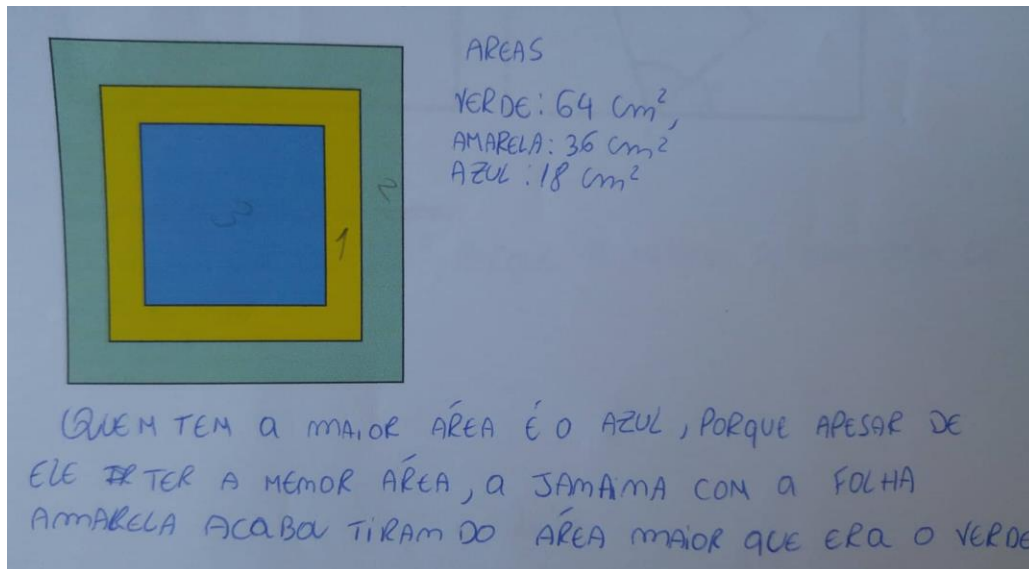 AREAS
VERDE: 64 cm²,
AMARELA: 36 cm²
AZUL: 18 cm²
2
3
1
QUEM TEM a MAIOR ÁREA É O AZUL, PORQUE APESAR DE
ELE TER A MEMOR ÁREA, a JAMAIMA COM a FOLHA
AMARELA ACABOU TIRAMDO ÁREA MAIOR QUE ERA O VERDE